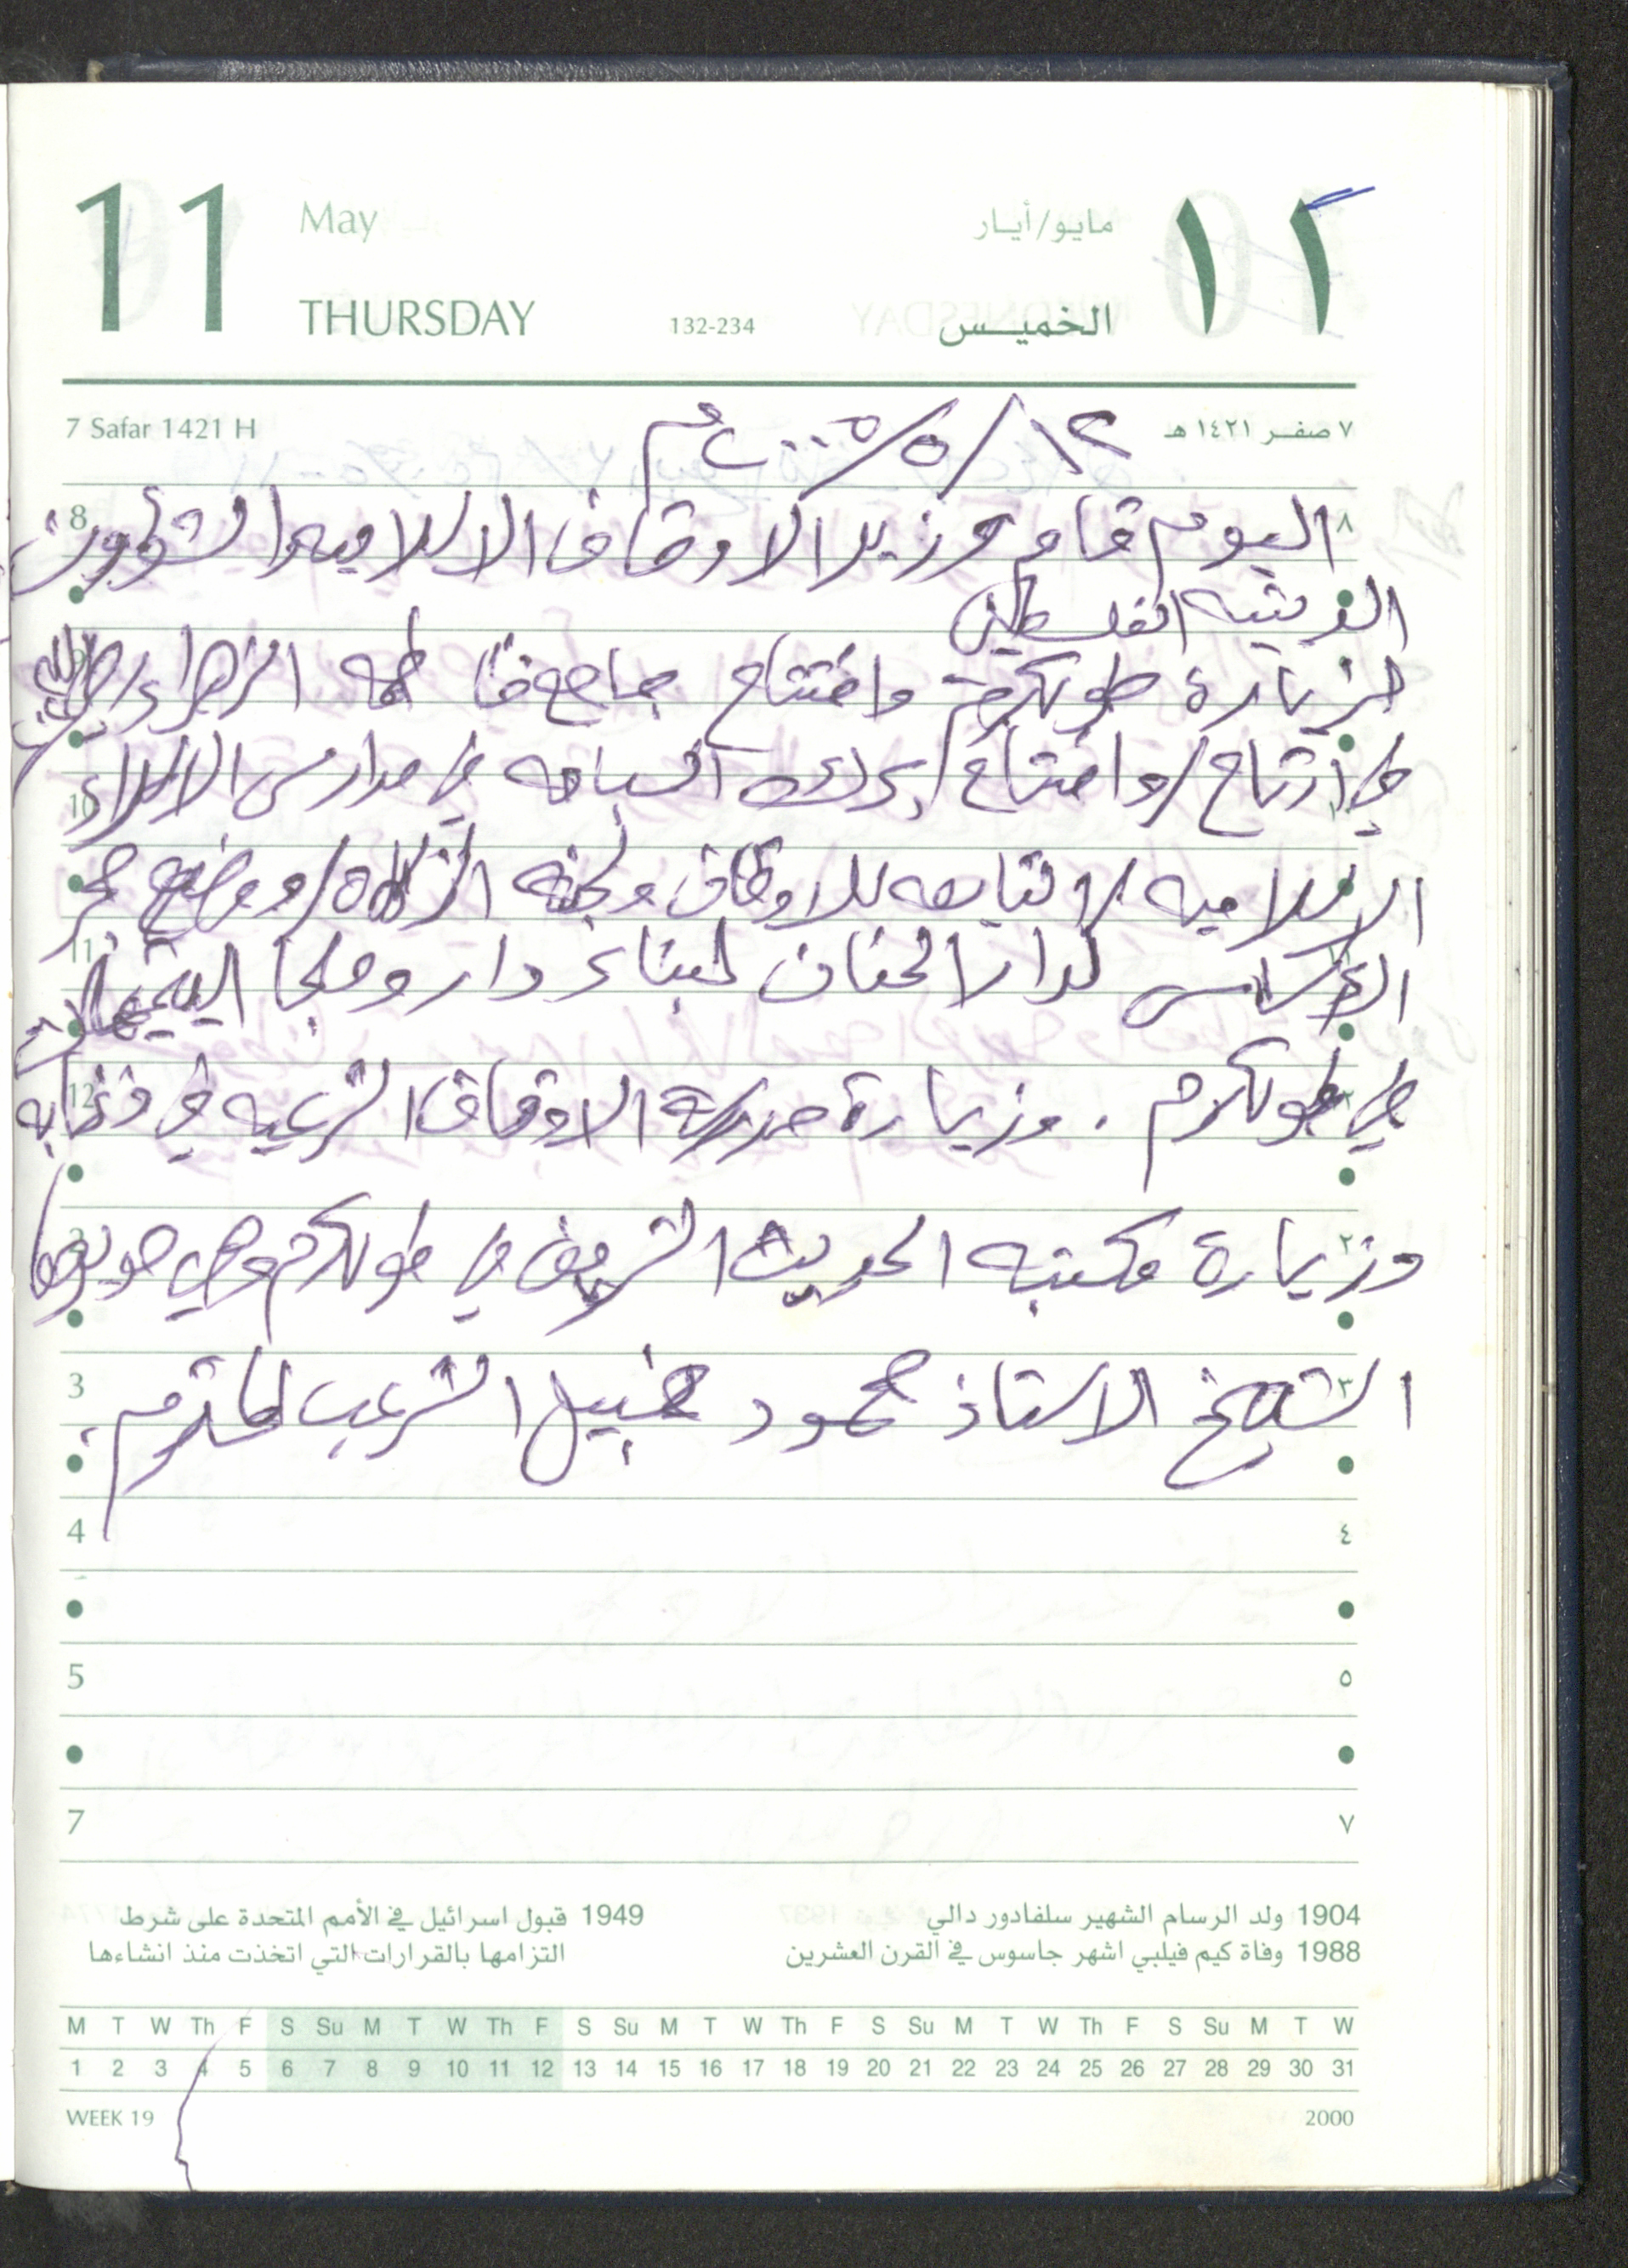 11 May مايو/أيار ١١
THURSDAY 132-234 الخميس
7 Safar 1421 H ٧ صفر ١٤٢١ هـ
١٢/٥/٢٠٠٠م
8 اليوم قام وزير الاوقاف الاسلاميه والشؤون ٨
الدينيه الفلسطيني
لزيارة طولكرم وافتتاح جامع فاطمه الزهراء
10 في ارتاح/وافتتاح/بركه السباحه في مدارس الاسراء
الاسلاميه/التابعه للاوقاف ولجنه الزكاة/ووضع حجر
11 الاساس لدار الحنان لبناء دار وملجا اليتيمات
12 في طولكرم . وزيارة مدرسة الاوقاف الشرعيه في
وزيارة مكتبه الحديث الشريف في طولكرم وهي ٢
3 الشيخ الاستاذ محمود نبيل الشرعب المحترم. ٣
4 ٤
5 ٥
7 ٧
1904 ولد الرسام الشهير سلفادور دالي
1988 وفاة كيم فيلبي اشهر جاسوس في القرن العشرين
1949 قبول اسرائيل في الأمم المتحدة على شرط
التزامها بالقرارات التي اتخذت منذ انشاءها
M T W Th F S Su M T W Th F S Su M T W Th F S Su M T W Th F S Su M T W
1 2 3 4 5 6 7 8 9 10 11 12 13 14 15 16 17 18 19 20 21 22 23 24 25 26 27 28 29 30 31
WEEK 19 2000